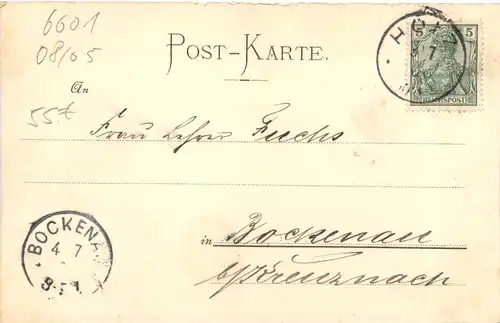 6601
08/05
POST-KARTE.
An
55t
Frau Lehrer Fuchs
in Bockenau
b/Kreuznach
5 5
REICHSPOST
7
BOCKENAU
4 7